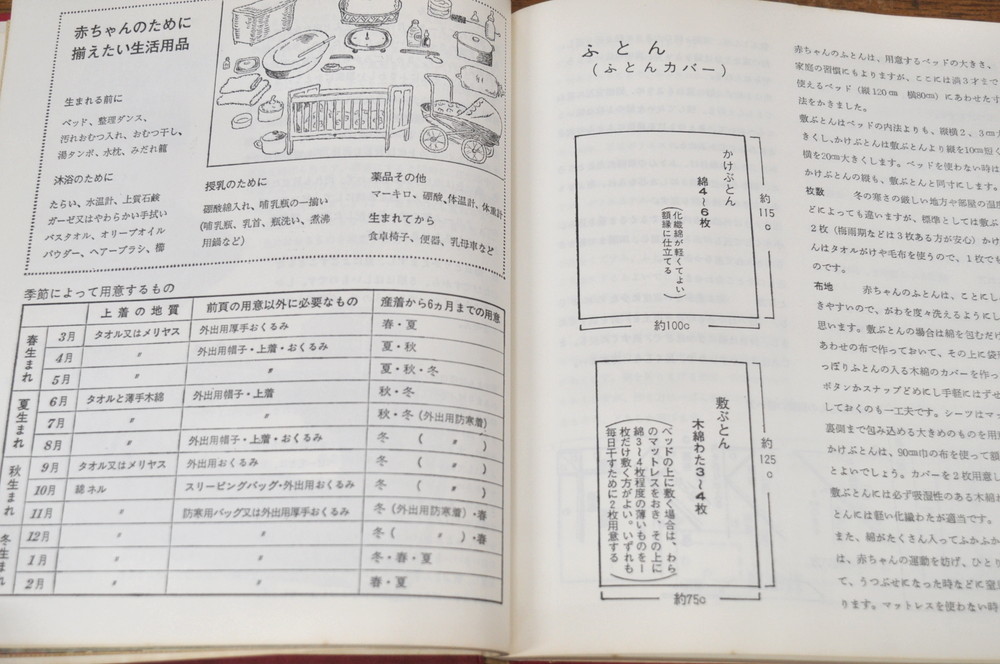 赤ちゃんのために
揃えたい生活用品
生まれる前に
ベッド、整理ダンス、
汚れおむつ入れ、おむつ干し、
湯タンポ、水枕、みだれ籠
沐浴のために
たらい、水温計、上質石鹸
ガーゼ又はやわらかい手拭い
バスタオル、オリーブオイル
パウダー、ヘアーブラシ、櫛
授乳のために
硼酸綿入れ、哺乳瓶の一揃い
(哺乳瓶、乳首、瓶洗い、煮沸
用鍋など)
薬品その他
マーキロ、硼酸、体温計、体重計
生まれてから
食卓椅子、便器、乳母車など
季節によって用意するもの
上着の地質 前頁の用意以外に必要なもの 産着から6ヵ月までの用意
春生まれ 3月 タオル又はメリヤス 外出用厚手おくるみ 春・夏
4月 〃 外出用帽子・上着・おくるみ 夏・秋
5月 〃 〃 夏・秋・冬
夏生まれ 6月 タオルと薄手木綿 外出用帽子・上着 秋・冬
7月 〃 〃 秋・冬(外出用防寒着)
8月 〃 外出用帽子・上着・おくるみ 冬 ( 〃 )
秋生まれ 9月 タオル又はメリヤス 外出用おくるみ 冬 ( 〃 )
10月 綿ネル スリーピングバッグ・外出用おくるみ 冬 ( 〃 )
11月 〃 防寒用バッグ又は外出用厚手おくるみ 冬(外出用防寒着)・春
冬生まれ 12月 〃 〃 冬( 〃 )・春
1月 〃 〃 冬・春・夏
2月 〃 〃 春・夏
ふとん
(ふとんカバー)
かけぶとん
綿4～6枚
(化繊綿が軽くてよい
額縁に仕立てる)
約115c
約100c
敷ぶとん
木綿わた3～4枚
(ベッドの上に敷く場合は、わら
のマットレスをおき、その上に
綿3～4枚程度の薄いものを一
枚だけ敷く方がよい。いずれも
毎日干すために2枚用意する)
約125c
約75c
赤ちゃんのふとんは、用意するベッドの大きさ、
家庭の習慣にもよりますが、ここには満3才まで
使えるベッド(縦120cm 横80cm)にあわせた寸
法をかきました。
敷ぶとんはベッドの内法よりも、縦横2、3cm
きくし、かけぶとんは敷ぶとんより縦を10cm短く
横を20cm大きくします。ベッドを使わない時は
かけぶとんの縦も、敷ぶとんと同寸にします。
枚数 冬の寒さの厳しい地方や部屋の温度
どによっても違いますが、標準としては敷ぶ
2枚(梅雨期などは3枚ある方が安心)かけ
んはタオルがけや毛布を使うので、1枚でも
のです。
布地 赤ちゃんのふとんは、ことにし
きやすいので、がわを度々洗えるようにし
思います。敷ぶとんの場合は綿を包むだけ
あわせの布で作っておいて、その上に袋
っぽりふとんの入る木綿のカバーを作っ
ボタンかスナップどめにし手軽にはずせ
しておくのも一工夫です。シーツはマッ
裏側まで包み込める大きめのものを用
かけぶとんは、90cm巾の布を使って額
とよいでしょう。カバーを2枚用意し
敷ぶとんには必ず吸湿性のある木綿わ
とんには軽い化繊わたが適当です。
また、綿がたくさん入ってふかふか
は、赤ちゃんの運動を妨げ、ひとり
て、うつぶせになった時などに窒
ります。マットレスを使わない時